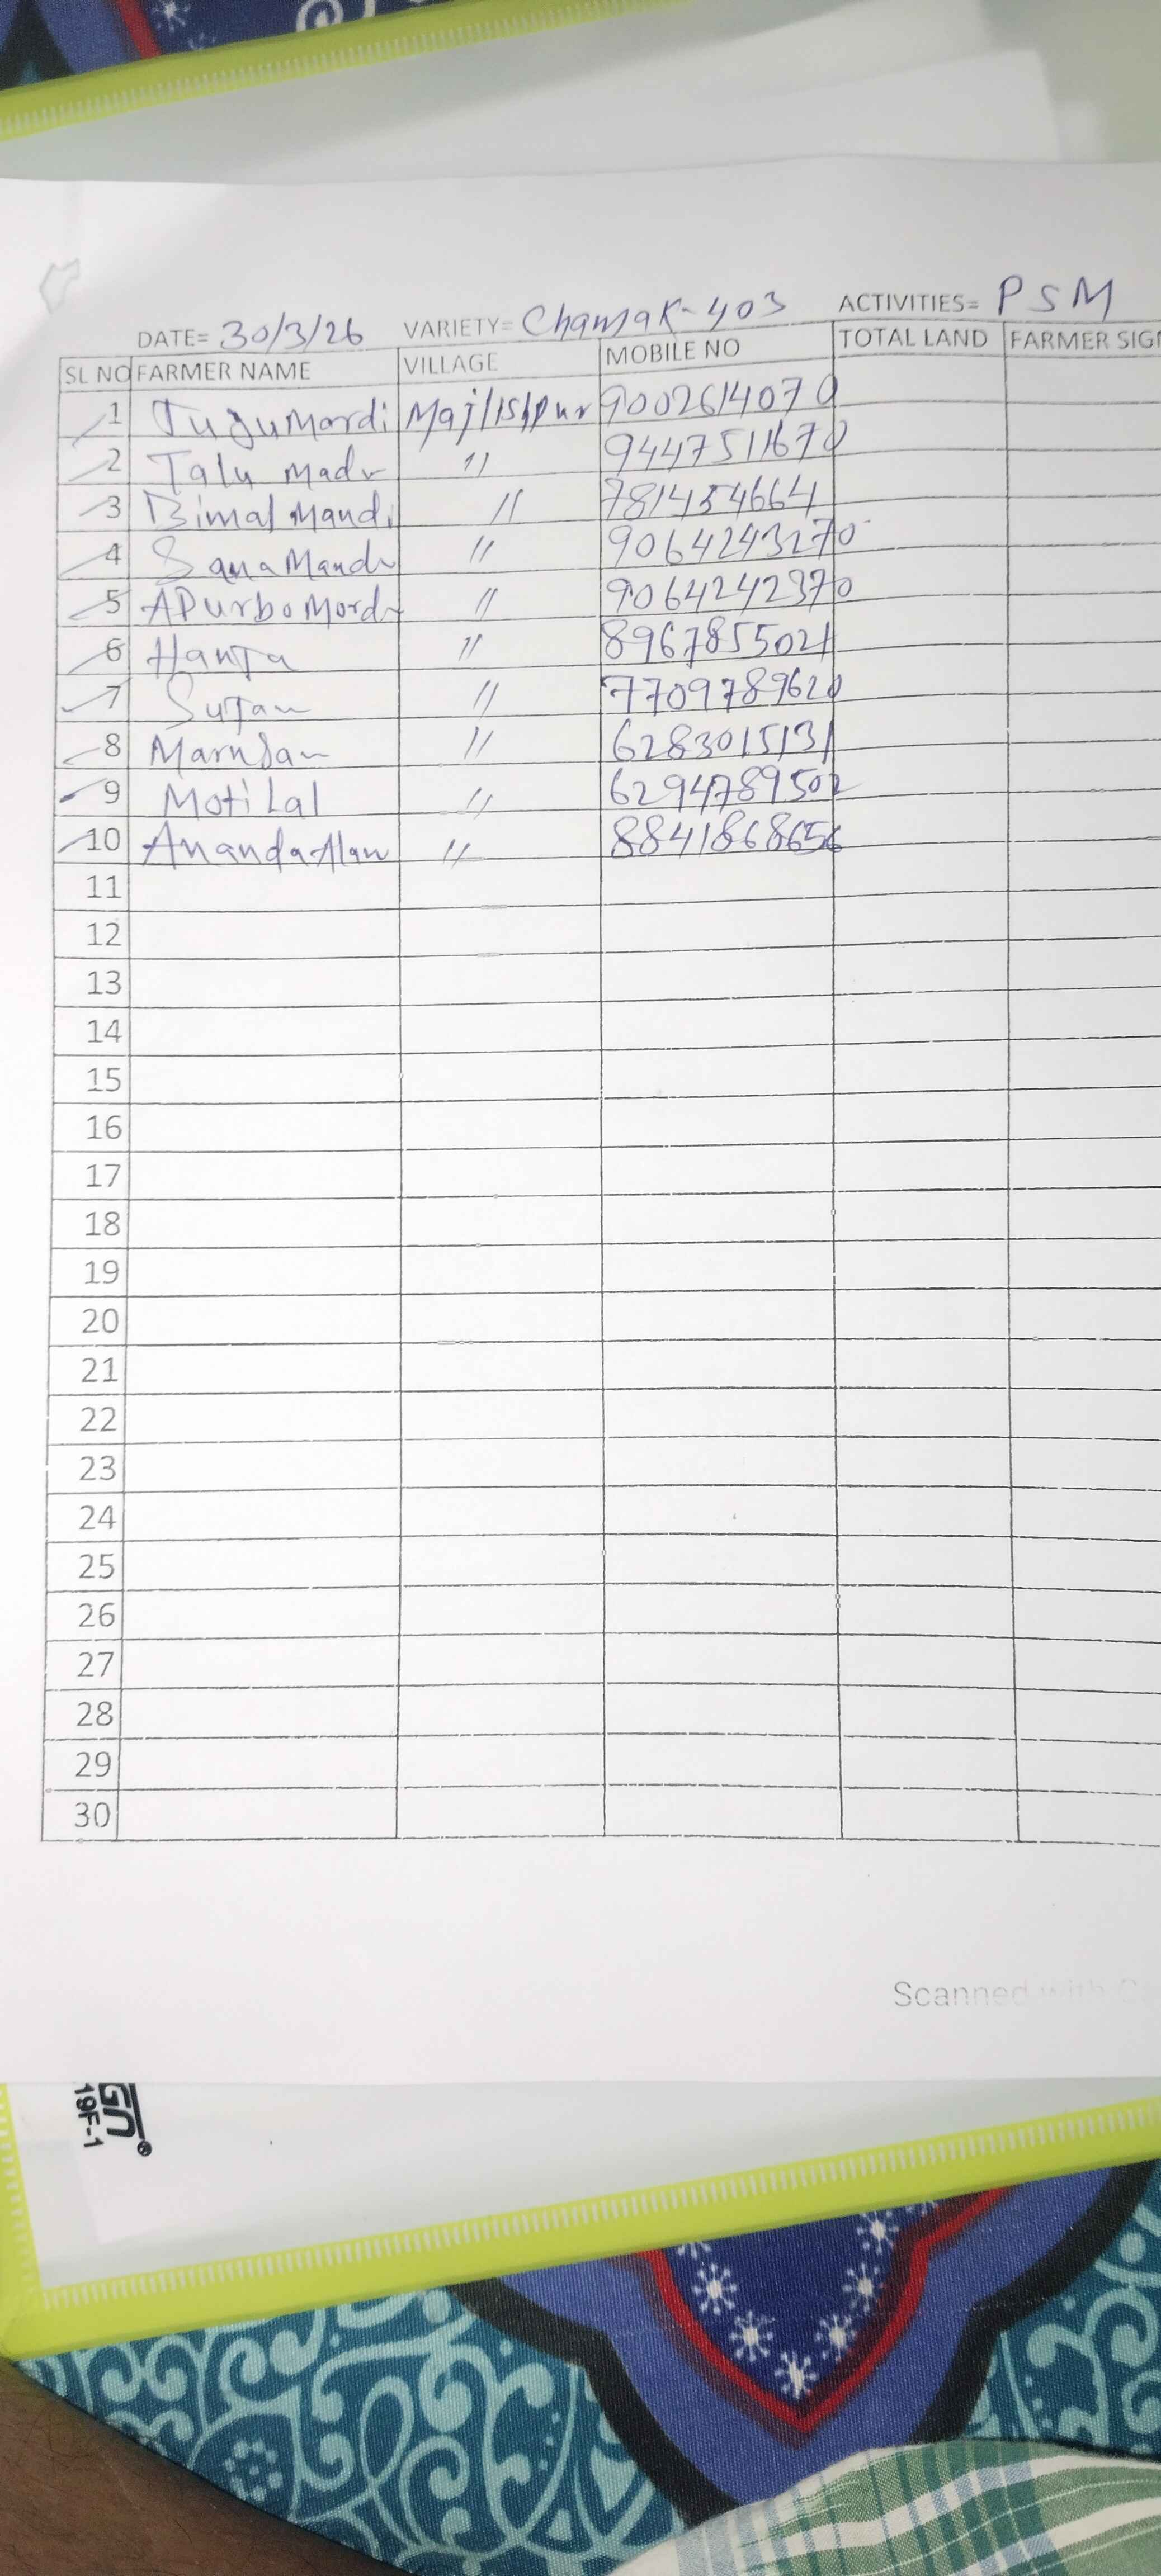 DATE= 30/3/26 VARIETY= Chamak-403 ACTIVITIES= PSM
SL NO FARMER NAME VILLAGE MOBILE NO TOTAL LAND FARMER SIGN
1 Juju Mardi Majlishpur 9002614070
2 Talu Madr " 9447511670
3 Bimal Mandi " 781454664
4 Sana Mandi " 9064243270
5 APurbo Mordi " 9064242370
6 " 8967855021
7 Sujan " 7709789620
8 " 6283015131
9 Moti Lal " 6294789502
10 Ananda " 8841868656
11
12
13
14
15
16
17
18
19
20
21
22
23
24
25
26
27
28
29
30
Scanned with
19F-1